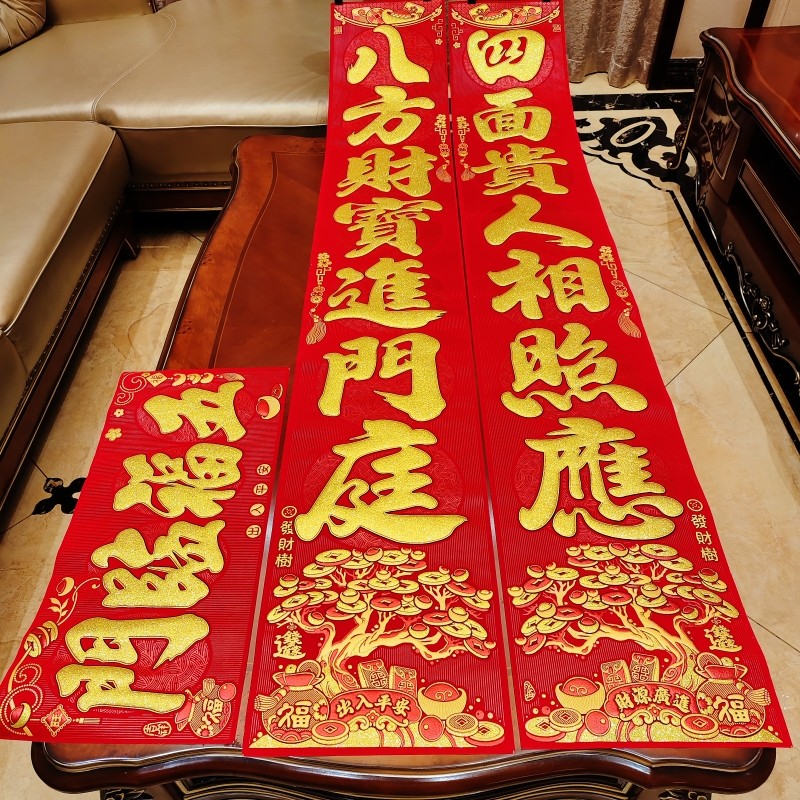 四面貴人相照應
八方財寶進門庭
五福臨門
發財樹
發財樹
財源廣進
出入平安
福
福
福